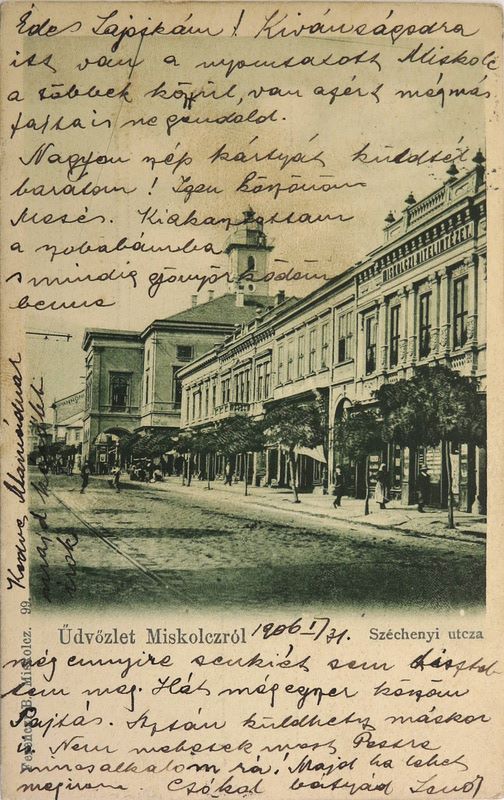 Édes Lajsikám! Kívánságodra
itt van a nyomtatott Miskolc
a többek közül, van azért még más
fajta is ne gondold.
Nagyon szép kártyát küldtél
barátom! Igen köszönöm
Mesés. Kiakasztottam
a szobámba
s mindig gyönyörködöm
benne
MISKOLCZI HITELINTÉZET.
Kedves Mamádnak
majd közelebb
irok
Ferenczi B. Miskolcz. 99.
Üdvözlet Miskolczról
1906 I/31.
Széchenyi utcza
még ennyire senkiét sem
tem meg. Hát mégegyszer köszönöm
Pajtás. Aztán küldhetsz máskor
is! Nem mehetek most Pestre
nincs alkalom rá! Majd ha lehet
megirom. Csókol bátyád Jenő